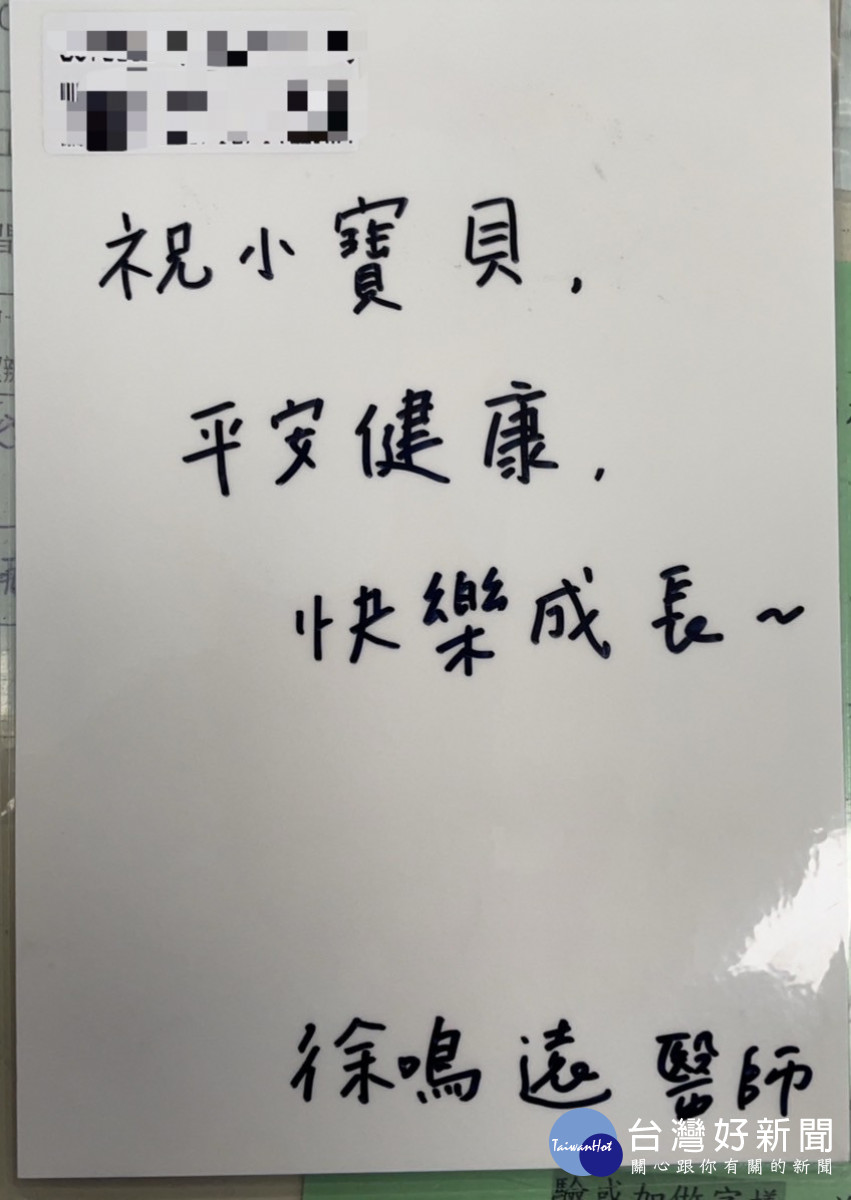 祝小寶貝,
平安健康,
快樂成長~
徐鳴遠醫師
TaiwanHot
台灣好新聞
關心跟你有關的新聞